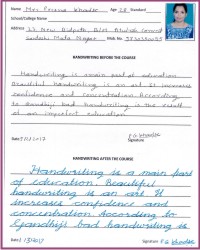 Name : Mrs Prerna Khodke Age : 28 Standard
School/College Name :
Address : 23, New Bidipeth, Near
Santoshi Mata Nagar Mob. No.
HANDWRITING BEFORE THE COURSE
Handwriting is main part of education
Beautiful handwriting is an art It increases
confidence and concentration According
to Gandhiji bad handwriting is the result
of an imperfect education
Date Signature
HANDWRITING AFTER THE COURSE
Handwriting is a main part
of Education. Beautiful
handwriting is an art It
increases confidence and
concentration According to
Gandhiji bad handwriting is
Date Signature